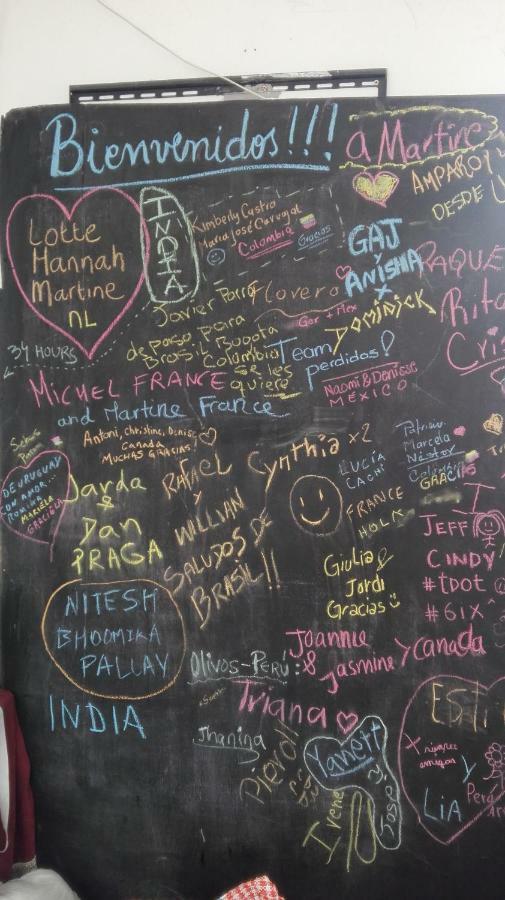 Bienvenidos!!!
a Martine
AMPARO
DESDE
Lotte
Hannah
Martine
NL
INDIA
Kimberly Castro
Maria José Carvajal
Colombia
Gracias
GAJ
Y
ANISHA
Javier Parra
Flovero
Ger + Alex
DOMINICK
de paso para
Brasil Bogota
Colombia
se les
quiere
34 HOURS
Team
perdidos!
Naomi & Denisse
MEXICO
MICHEL FRANCE
and Martine France
Antoni, Christine, Denise
Canada
MUCHAS GRACIAS!
DE URUGUAY
CON AMOR...
ROMINA
MARIELA
GRACIELA
Jarda
&
Dan
PRAGA
RAFAEL
Y
WILLIAN
SALUDOS DE
BRASIL!!
Cynthia x2
LUCÍA
CACHI
FRANCE
HOLA
Patricia
Marcela
Néstor
Colombia
GRACIAS
I
JEFF
CINDY
#tDOT
#6IX
Giulia &
Jordi
Gracias
NITESH
BHOOMIKA
PALLAV
INDIA
Joanne
& Jasmine y Canada
Olivos-Perú:
Triana
Jhanina
Pierol
Yanett
José
Irene
y
LIA